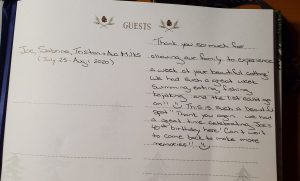 GUESTS
Joe, Sabrina, Tristan + Ace
(July 25 - Aug 1 2020)
Thank you so much for
allowing our family to experience
a week at your beautiful cottage!
We had such a great week
swimming, eating, fishing,
kayaking, and the list goes
on!! This is such a beautiful
spot! Thank you again. we had
a great time celebrating Joe's
birthday here! Can't wait
to come back to make more
memories!!